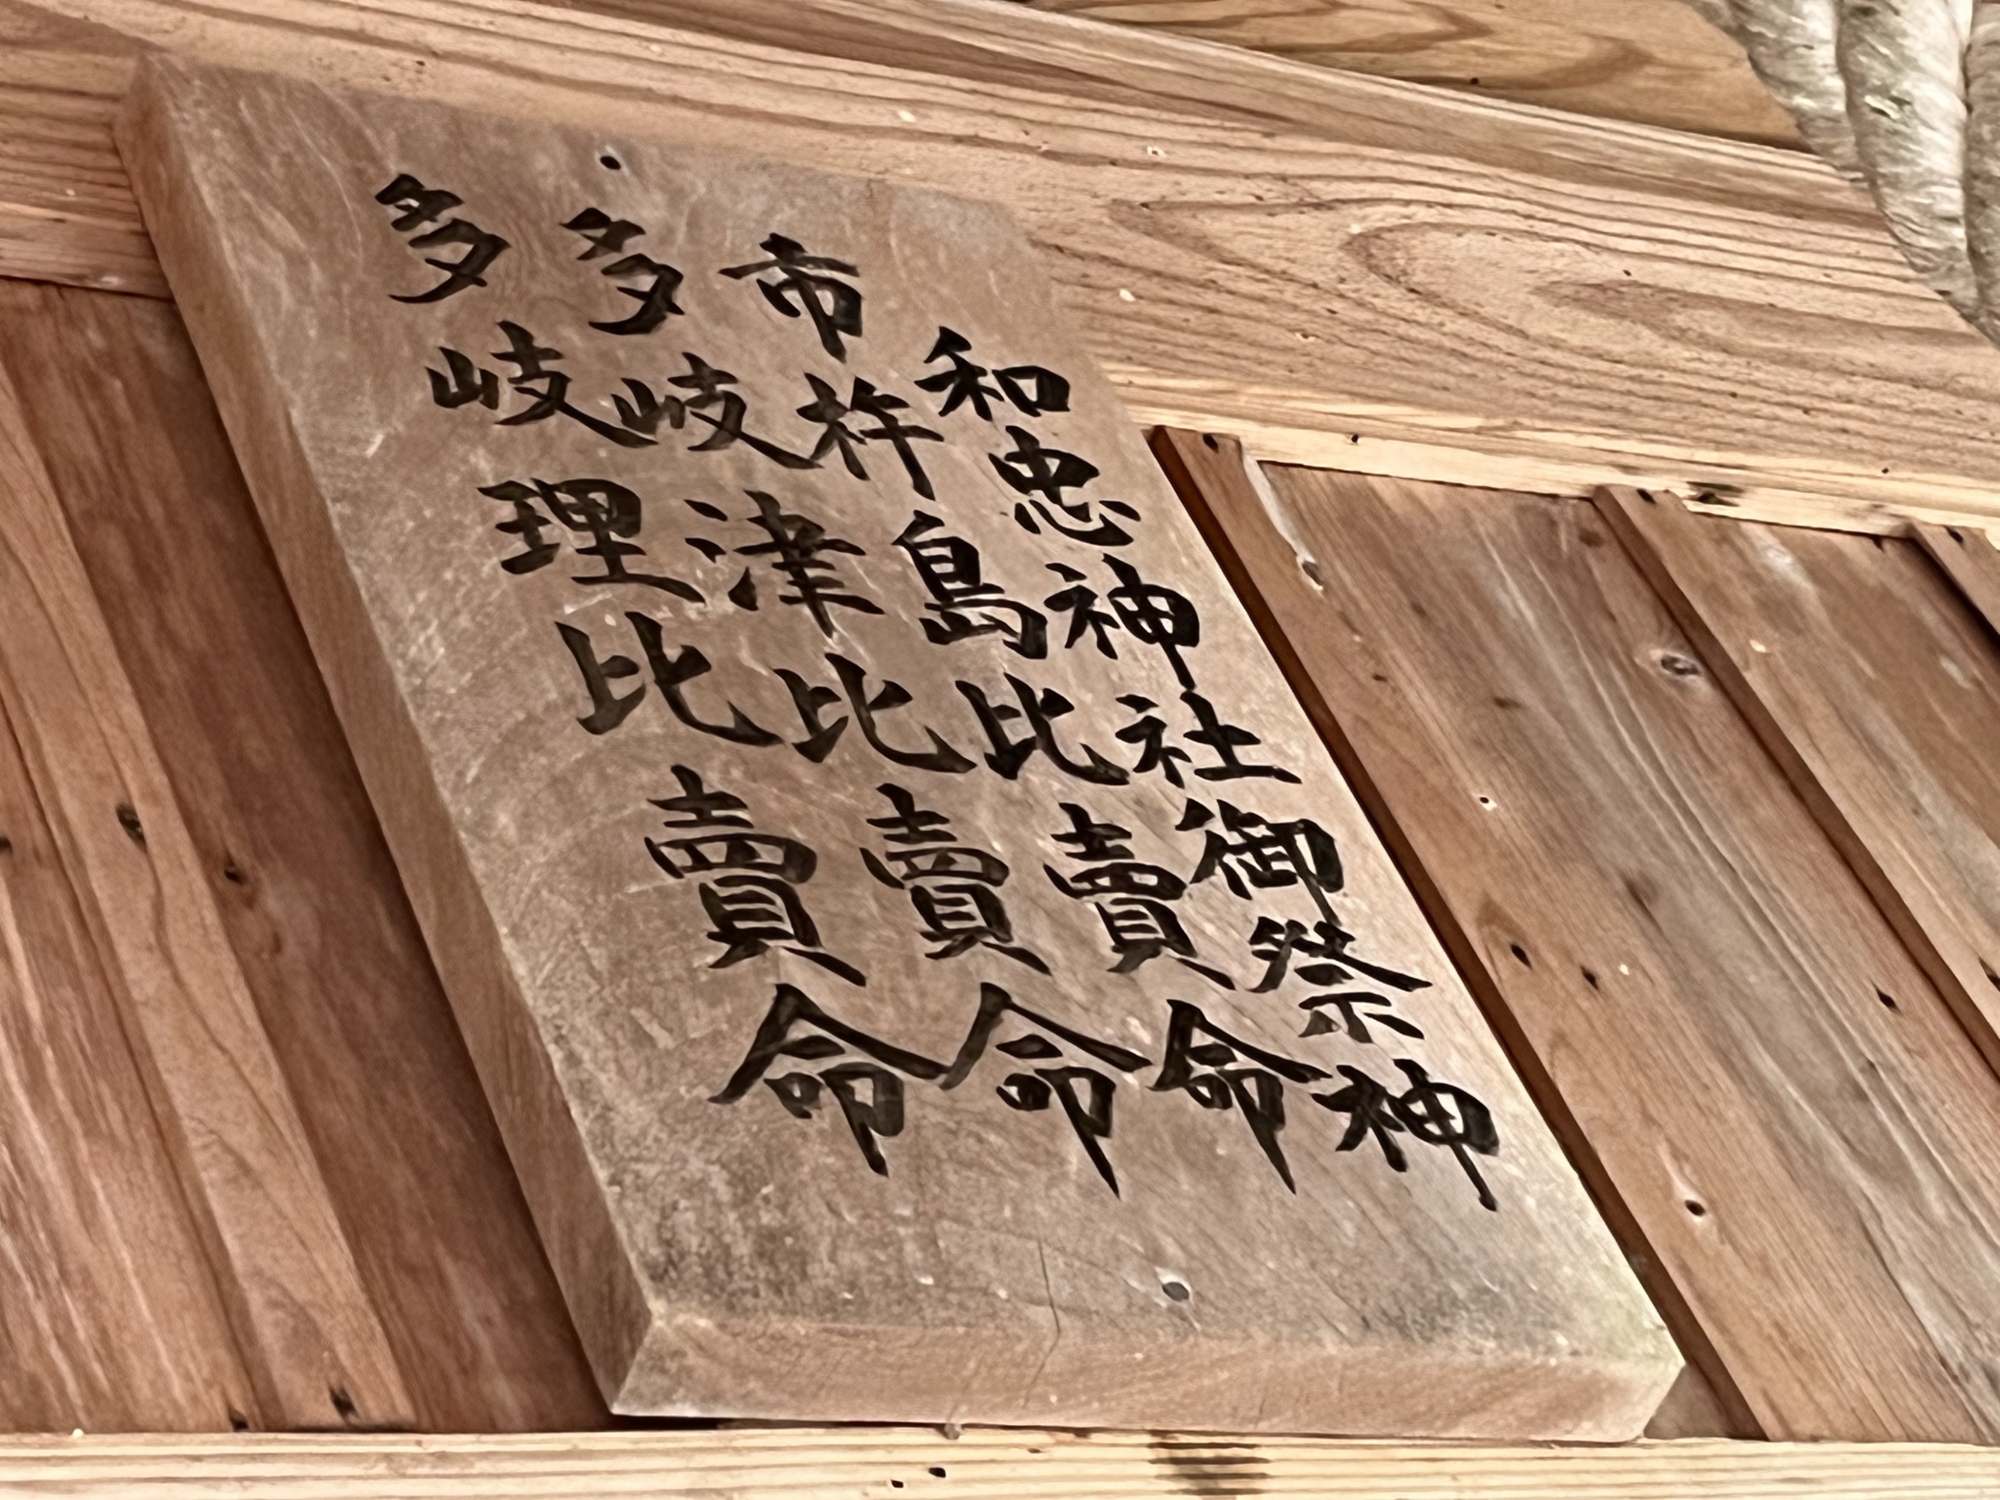 和忠神社御祭神
市杵島比賣命
多岐津比賣命
多岐理比賣命